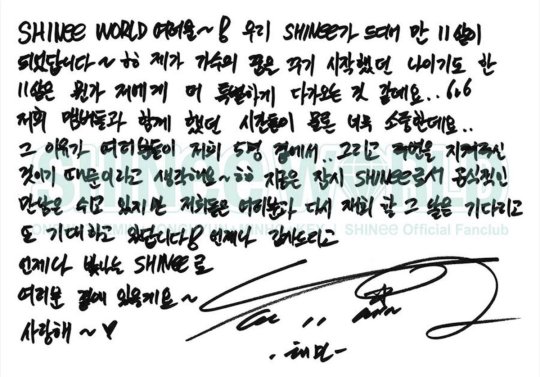 SHINee WORLD 여러분~! 우리 SHINee가 드디어 만 11살이
되었답니다~ㅎㅎ 제가 가수의 꿈을 꾸기 시작했던 나이기도 한
11살은 뭔가 저에게 더 특별하게 다가오는 것 같네요..
저희 멤버들과 함께 했던 시간들이 물론 너무 소중한데요..
그 이유가 여러분들이 저희 5명 곁에서..그리고 태민을 지켜주신
것이기 때문이라고 생각해요~ㅎㅎ 지금은 잠시 SHINee로서 공식적인
만남을 쉬고 있지만 저희들은 여러분과 다시 재회 할 그 날을 기다리고
또 기대하고 있답니다! 언제나 감사드리고
언제나 빛나는 SHINee로
여러분 곁에 있을게요~
사랑해~♥
-태민-
SHINee WORLD
SHINee Official Fanclub